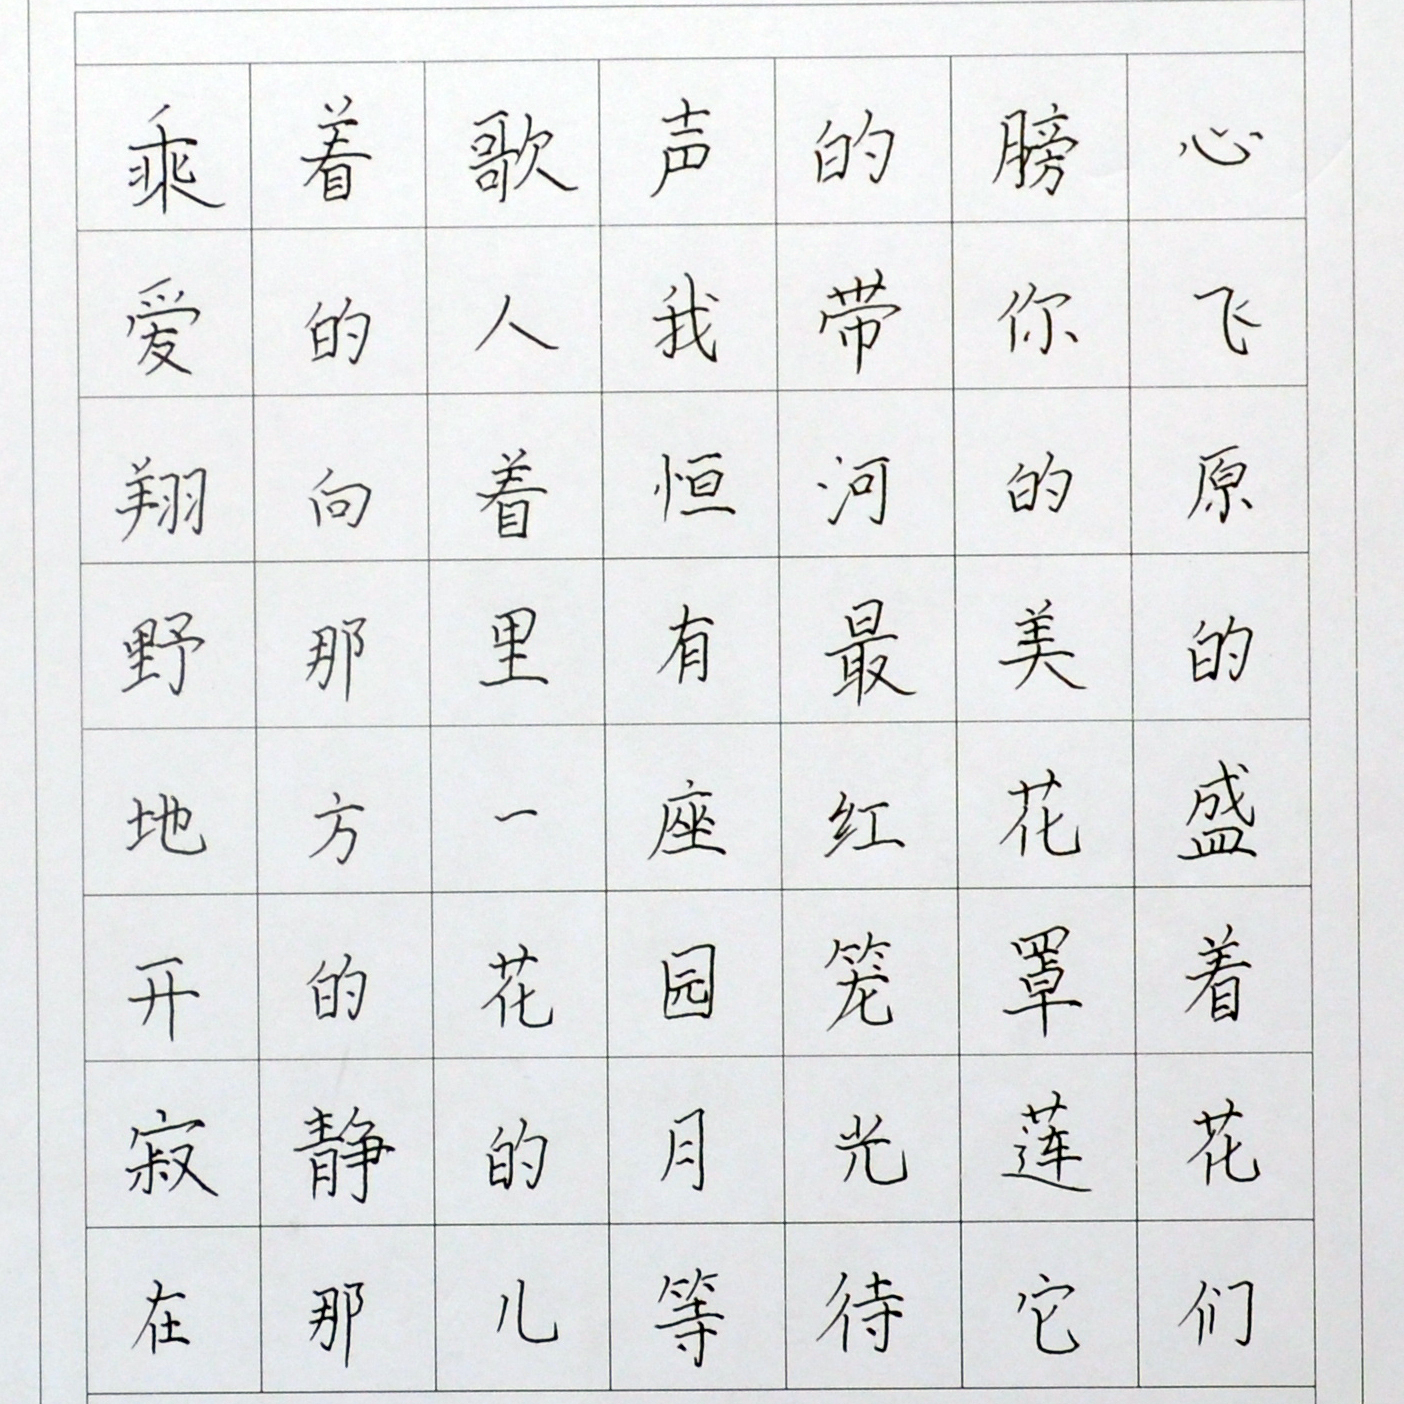 乘着歌声的膀心
爱的人我带你飞
翔向着恒河的原
野那里有最美的
地方一座红花盛
开的花园笼罩着
寂静的月光莲花
在那儿等待它们